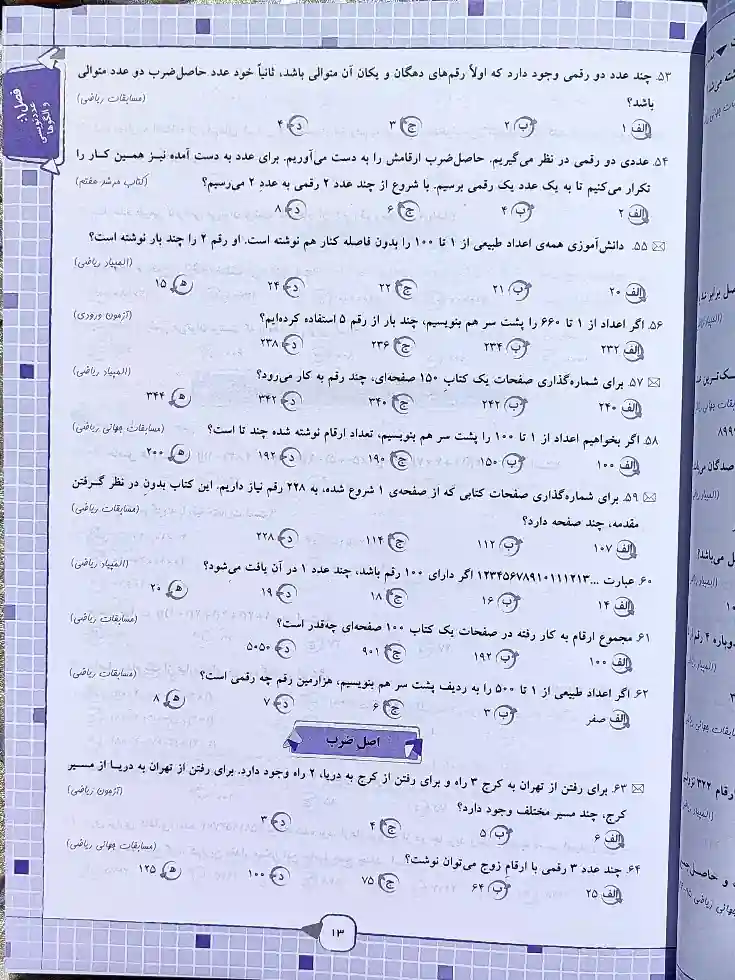 فصل ۱:
عددنویسی
و الگوها
۵۳. چند عدد دو رقمی وجود دارد که اولاً رقم‌های دهگان و یکان آن متوالی باشد، ثانیاً خود عدد حاصل‌ضرب دو عدد متوالی
باشد؟ (مسابقات ریاضی)
الف ۱ ب ۲ ج ۳ د ۴
۵۴. عددی دو رقمی در نظر می‌گیریم. حاصل‌ضرب ارقامش را به دست می‌آوریم. برای عدد به دست آمده نیز همین کار را
تکرار می‌کنیم تا به یک عدد یک رقمی برسیم. با شروع از چند عدد ۲ رقمی به عدد ۲ می‌رسیم؟ (کتاب مرشد هفتم)
الف ۲ ب ۴ ج ۶ د ۸
۵۵. دانش‌آموزی همه‌ی اعداد طبیعی از ۱ تا ۱۰۰ را بدون فاصله کنار هم نوشته است. او رقم ۲ را چند بار نوشته است؟
(المپیاد ریاضی)
الف ۲۰ ب ۲۱ ج ۲۲ د ۲۴ ه ۱۵
۵۶. اگر اعداد از ۱ تا ۶۶۰ را پشت سر هم بنویسیم، چند بار از رقم ۵ استفاده کرده‌ایم؟ (آزمون ورودی)
الف ۲۳۲ ب ۲۳۴ ج ۲۳۶ د ۲۳۸
۵۷. برای شماره‌گذاری صفحات یک کتاب ۱۵۰ صفحه‌ای، چند رقم به کار می‌رود؟ (المپیاد ریاضی)
الف ۲۴۰ ب ۲۴۲ ج ۳۴۰ د ۳۴۲ ه ۳۴۴
۵۸. اگر بخواهیم اعداد از ۱ تا ۱۰۰ را پشت سر هم بنویسیم، تعداد ارقام نوشته شده چند تا است؟ (مسابقات جهانی ریاضی)
الف ۱۰۰ ب ۱۵۰ ج ۱۹۰ د ۱۹۲ ه ۲۰۰
۵۹. برای شماره‌گذاری صفحات کتابی که از صفحه‌ی ۱ شروع شده، به ۲۲۸ رقم نیاز داریم. این کتاب بدون در نظر گرفتن
مقدمه، چند صفحه دارد؟ (مسابقات ریاضی)
الف ۱۰۷ ب ۱۱۲ ج ۱۱۴ د ۲۲۸
۶۰. عبارت ...۱۲۳۴۵۶۷۸۹۱۰۱۱۱۲۱۳ اگر دارای ۱۰۰ رقم باشد، چند عدد ۱ در آن یافت می‌شود؟ (المپیاد ریاضی)
الف ۱۴ ب ۱۶ ج ۱۸ د ۱۹ ه ۲۰
۶۱. مجموع ارقام به کار رفته در صفحات یک کتاب ۱۰۰ صفحه‌ای چه‌قدر است؟ (مسابقات ریاضی)
الف ۱۰۰ ب ۱۹۲ ج ۹۰۱ د ۵۰۵۰
۶۲. اگر اعداد طبیعی از ۱ تا ۵۰۰ را به ردیف پشت سر هم بنویسیم، هزارمین رقم چه رقمی است؟ (مسابقات ریاضی)
الف صفر ب ۳ ج ۶ د ۷ ه ۸
اصل ضرب
۶۳. برای رفتن از تهران به کرج ۳ راه و برای رفتن از کرج به دریا، ۲ راه وجود دارد. برای رفتن از تهران به دریا از مسیر
کرج، چند مسیر مختلف وجود دارد؟ (آزمون ریاضی)
الف ۶ ب ۵ ج ۴ د ۳
۶۴. چند عدد ۳ رقمی با ارقام زوج می‌توان نوشت؟ (مسابقات جهانی ریاضی)
الف ۲۵ ب ۶۴ ج ۷۵ د ۱۰۰ ه ۱۲۵
۱۳